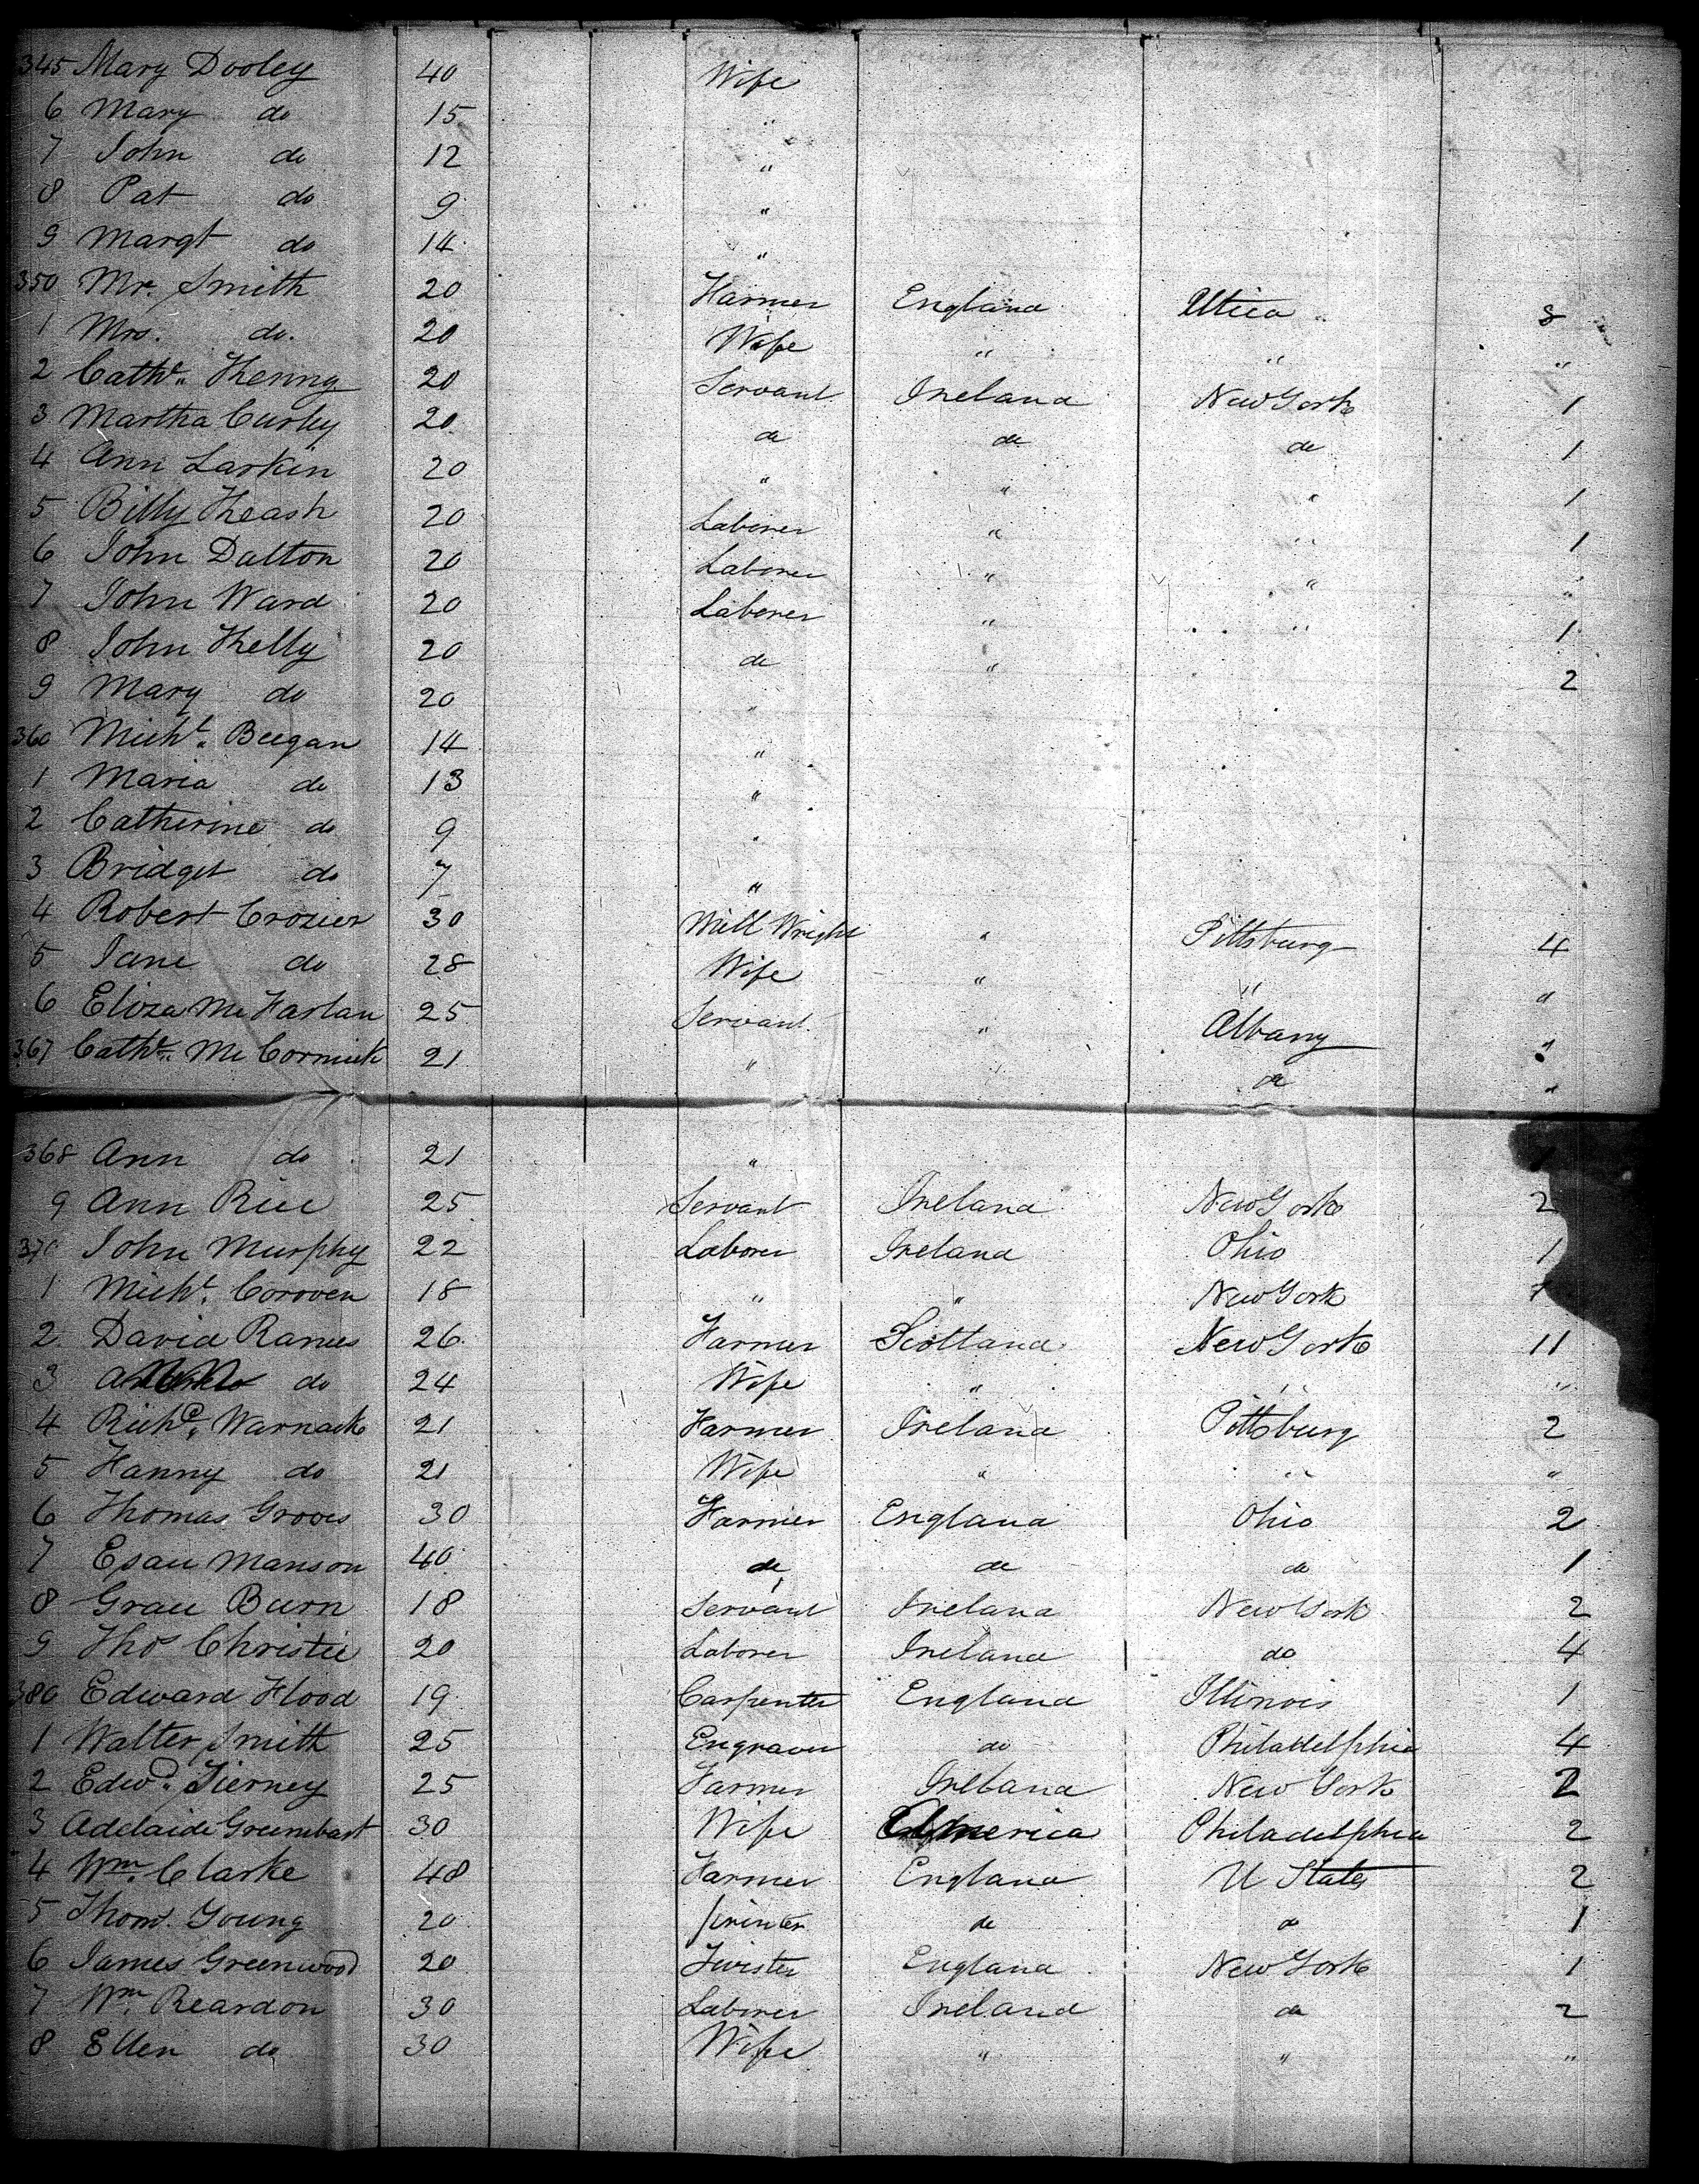 345 Mary Dooley 40 Wife
6 Mary do 15 "
7 John do 12 "
8 Pat do 9 "
9 Margt do 14 "
350 Mr. Smith 20 Farmer England Utica 8
1 Mrs. do. 20 Wife " " "
2 Cathe. Kenny 20 Servant Ireland New York 1
3 Martha Curley 20 do do do 1
4 Ann Larkin 20 " " " 1
5 Billy Keash 20 Laborer " " 1
6 John Dalton 20 Laborer " " "
7 John Ward 20 Laborer " " 1
8 John Kelly 20 do " 2
9 Mary do 20 "
360 Michl. Beegan 14 "
1 Maria do 13 "
2 Catherine do 9 "
3 Bridget do 7 "
4 Robert Crozier 30 Mill Wright " Pittsburg 4
5 Jane do 28 Wife " " "
6 Eliza McFarlan 25 Servant " Albany "
367 Cathe. McCormick 21 " " do "
368 Ann do 21 "
9 Ann Rice 25 Servant Ireland New York 2
370 John Murphy 22 Laborer Ireland Ohio 1
1 Michl. Coroven 18 " " New York
2 David Rames 26 Farmer Scotland New York 11
3 do 24 Wife " " "
4 Richd. Warnack 21 Farmer Ireland Pittsburg 2
5 Fanny do 21 Wife " " "
6 Thomas Groves 30 Farmer England Ohio 2
7 Esau Manson 40 do do do 1
8 Grace Burn 18 Servant Ireland New York 2
9 Thos Christie 20 Laborer Ireland do 4
380 Edward Flood 19 Carpenter England Illinois 1
1 Walter Smith 25 Engraver do Philadelphia 4
2 Edwd. Tierney 25 Farmer Ireland New York 2
3 Adelaide Greenbast 30 Wife America Philadelphia 2
4 Wm. Clarke 48 Farmer England U States 2
5 Thom. Young 20 printer do do 1
6 James Greenwood 20 Twister England New York 1
7 Wm. Reardon 30 Laborer Ireland do 2
8 Ellen do 30 Wife " " "